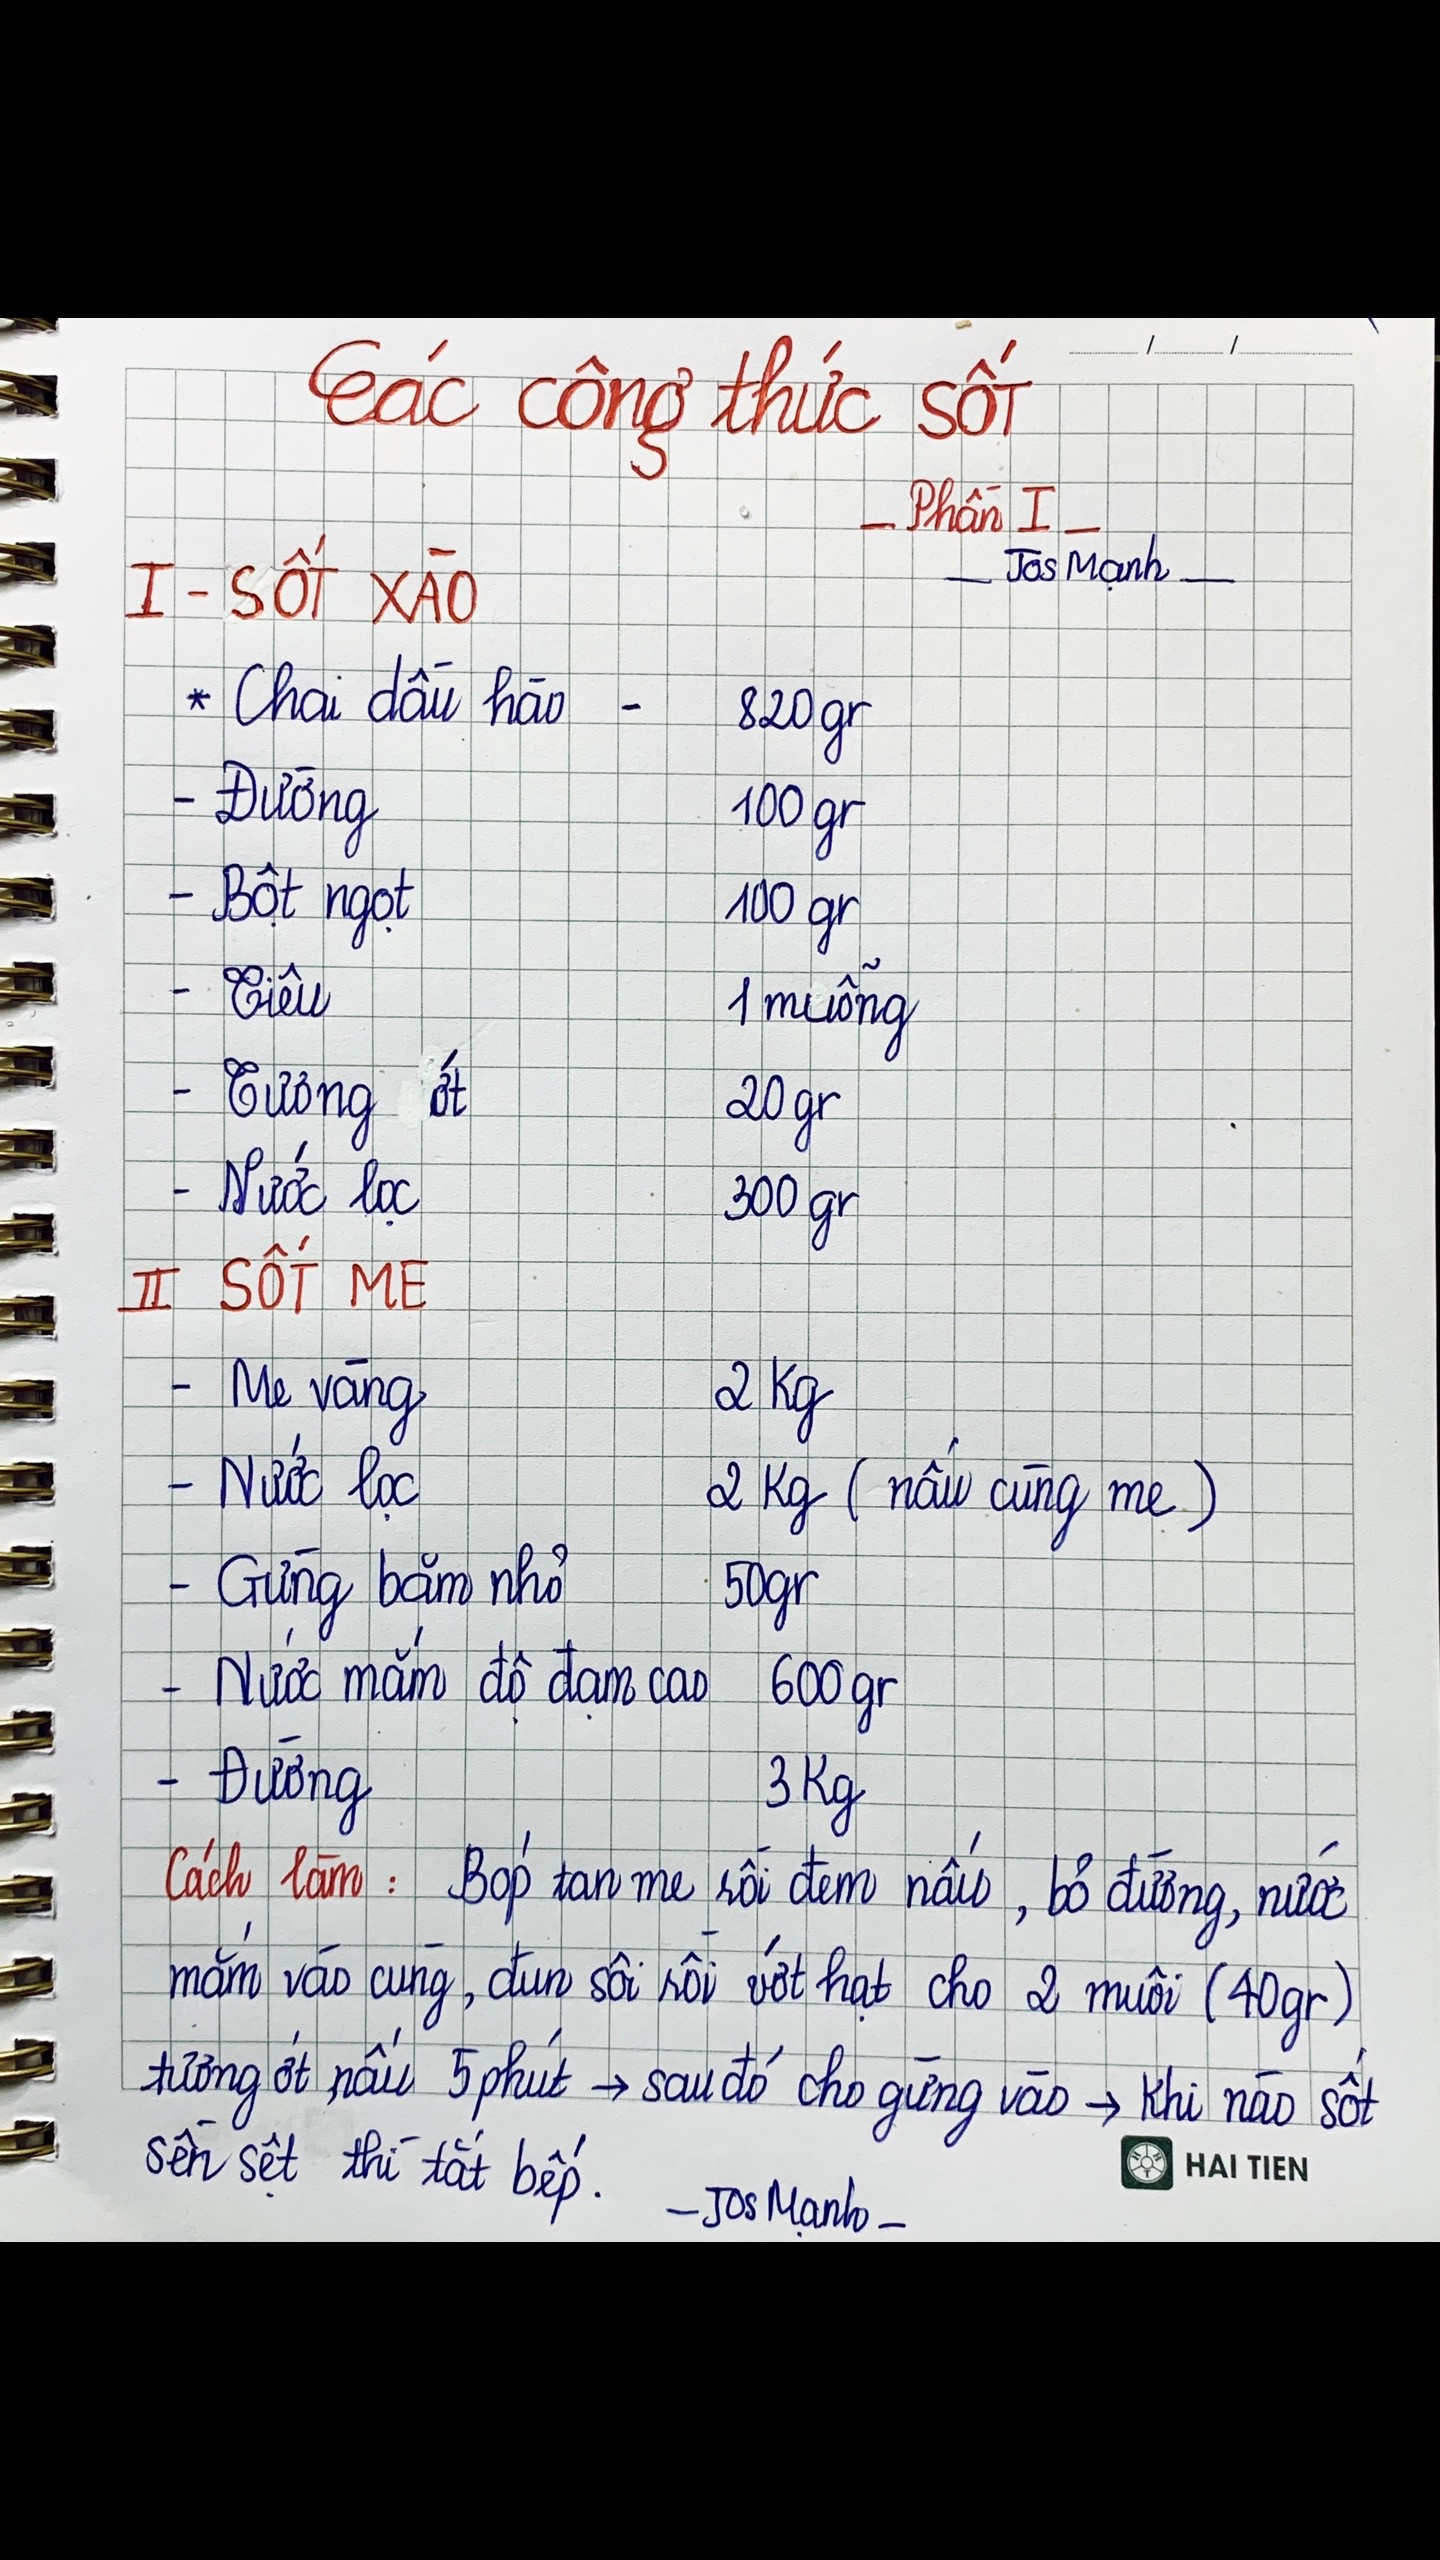 Các công thức SỐT
_ Phần I _
_ Jos Mạnh _
I - SỐT XÀO
* Chai dầu hào - 820gr
- Đường 100gr
- Bột ngọt 100gr
- Tiêu 1 muỗng
- Tương ớt 20gr
- Nước lọc 300gr
II SỐT ME
- Me vàng 2 Kg
- Nước lọc 2 Kg ( nấu cùng me )
- Gừng băm nhỏ 50gr
- Nước mắm độ đạm cao 600gr
- Đường 3 Kg
Cách làm : Bóp tan me rồi đem nấu , bỏ đường, nước
mắm vào cùng, đun sôi rồi vớt hạt cho 2 muôi (40gr)
tương ớt nấu 5 phút → sau đó cho gừng vào → Khi nào sốt
sền sệt thì tắt bếp.
_ Jos Mạnh _
HAI TIEN